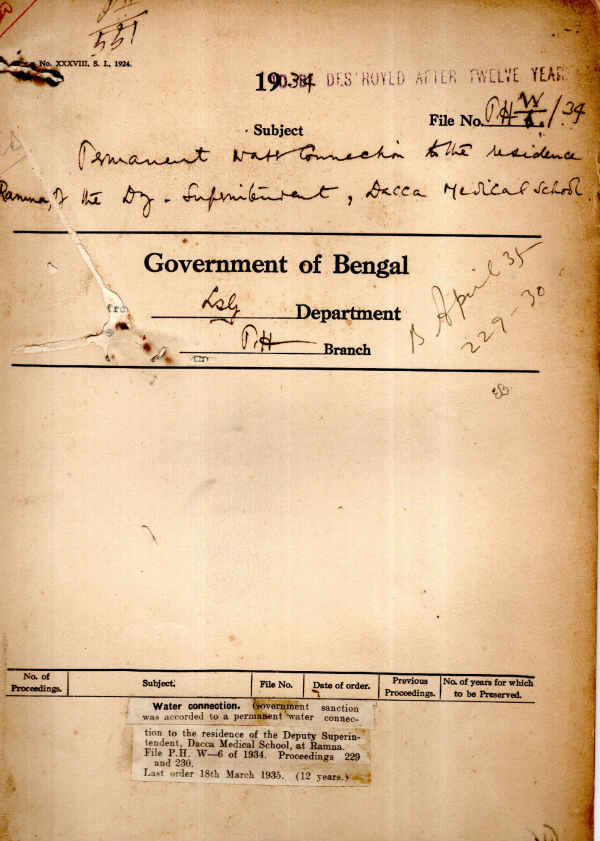 551
No. XXXVIII, S. I., 1924.
1934
DESTROYED AFTER TWELVE YEAR
File No. P.H W/6 /34
Subject
Permanent water connection to the residence
Ramna, of the Dy. Superintendent, Dacca Medical School.
Government of Bengal
LSG Department
P.H Branch
B April 35
229-30
No. of Proceedings. Subject. File No. Date of order. Previous Proceedings. No. of years for which to be Preserved.
Water connection. Government sanction
was accorded to a permanent water connec-
tion to the residence of the Deputy Superin-
tendent, Dacca Medical School, at Ramna.
File P.H. W—6 of 1934. Proceedings 229
and 230.
Last order 18th March 1935. (12 years.)